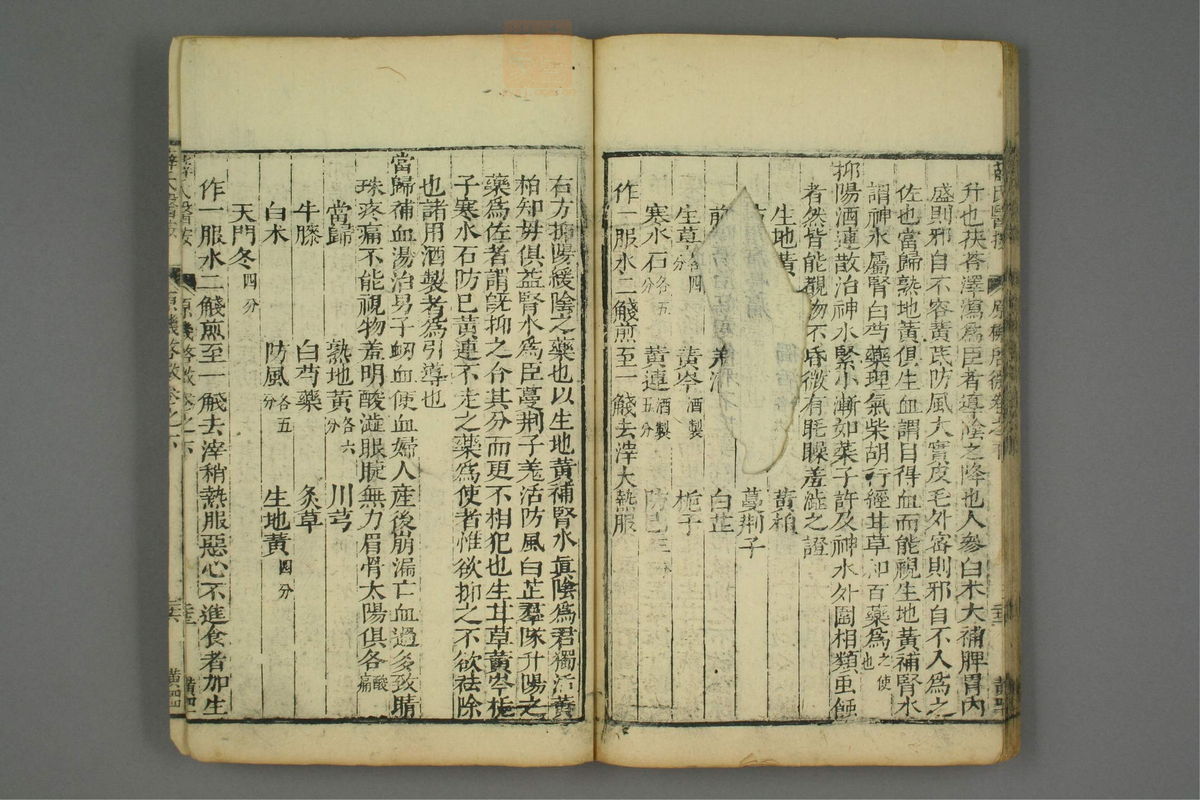 升也茯苓澤瀉為臣者導陰之降也人參白术大補脾胃內
盛則邪自不容黃芪防風大實皮毛外密則邪自不入為之
佐也當歸熟地黃俱生血謂目得血而能視生地黃補腎水
謂神水屬腎白芍藥理氣柴胡行經甘草和百藥為之使也
抑陽酒連散治神水緊小漸如菜子許及神水外圍相類虫蝕
者然皆能覩物不昏微有眊矂羞澁之證
生地黃 黃栢
蔓荆子
前 白芷
生草各四分 黃岑酒製 梔子
寒水石各五分 黃連酒製五分 防己三分
作一服水二醆煎至一醆去滓大熱服
右方抑陽緩陰之藥也以生地黃補腎水眞陰為君獨活黃
栢知毋俱益腎水為臣蔓荆子羌活防風白芷羣隊升陽之
藥為佐者謂旣抑之令其分而更不相犯也生甘草黃岑梔
子寒水石防己黃連不走之藥為使者惟欲抑之不欲祛除
也諸用酒製者為引導也
當歸補血湯治男子衂血便血婦人產後崩漏亡血過多致睛
珠疼痛不能視物羞明酸澁眼睫無力眉骨太陽俱各酸痛
當歸 熟地黃各六分 川芎
牛膝 白芍藥 炙草
白术 防風各五分 生地黃四分
天門冬四分
作一服水二醆煎至一醆去滓稍熱服惡心不進食者加生
薛氏醫按 原機啓微卷之下 二十六 黃四